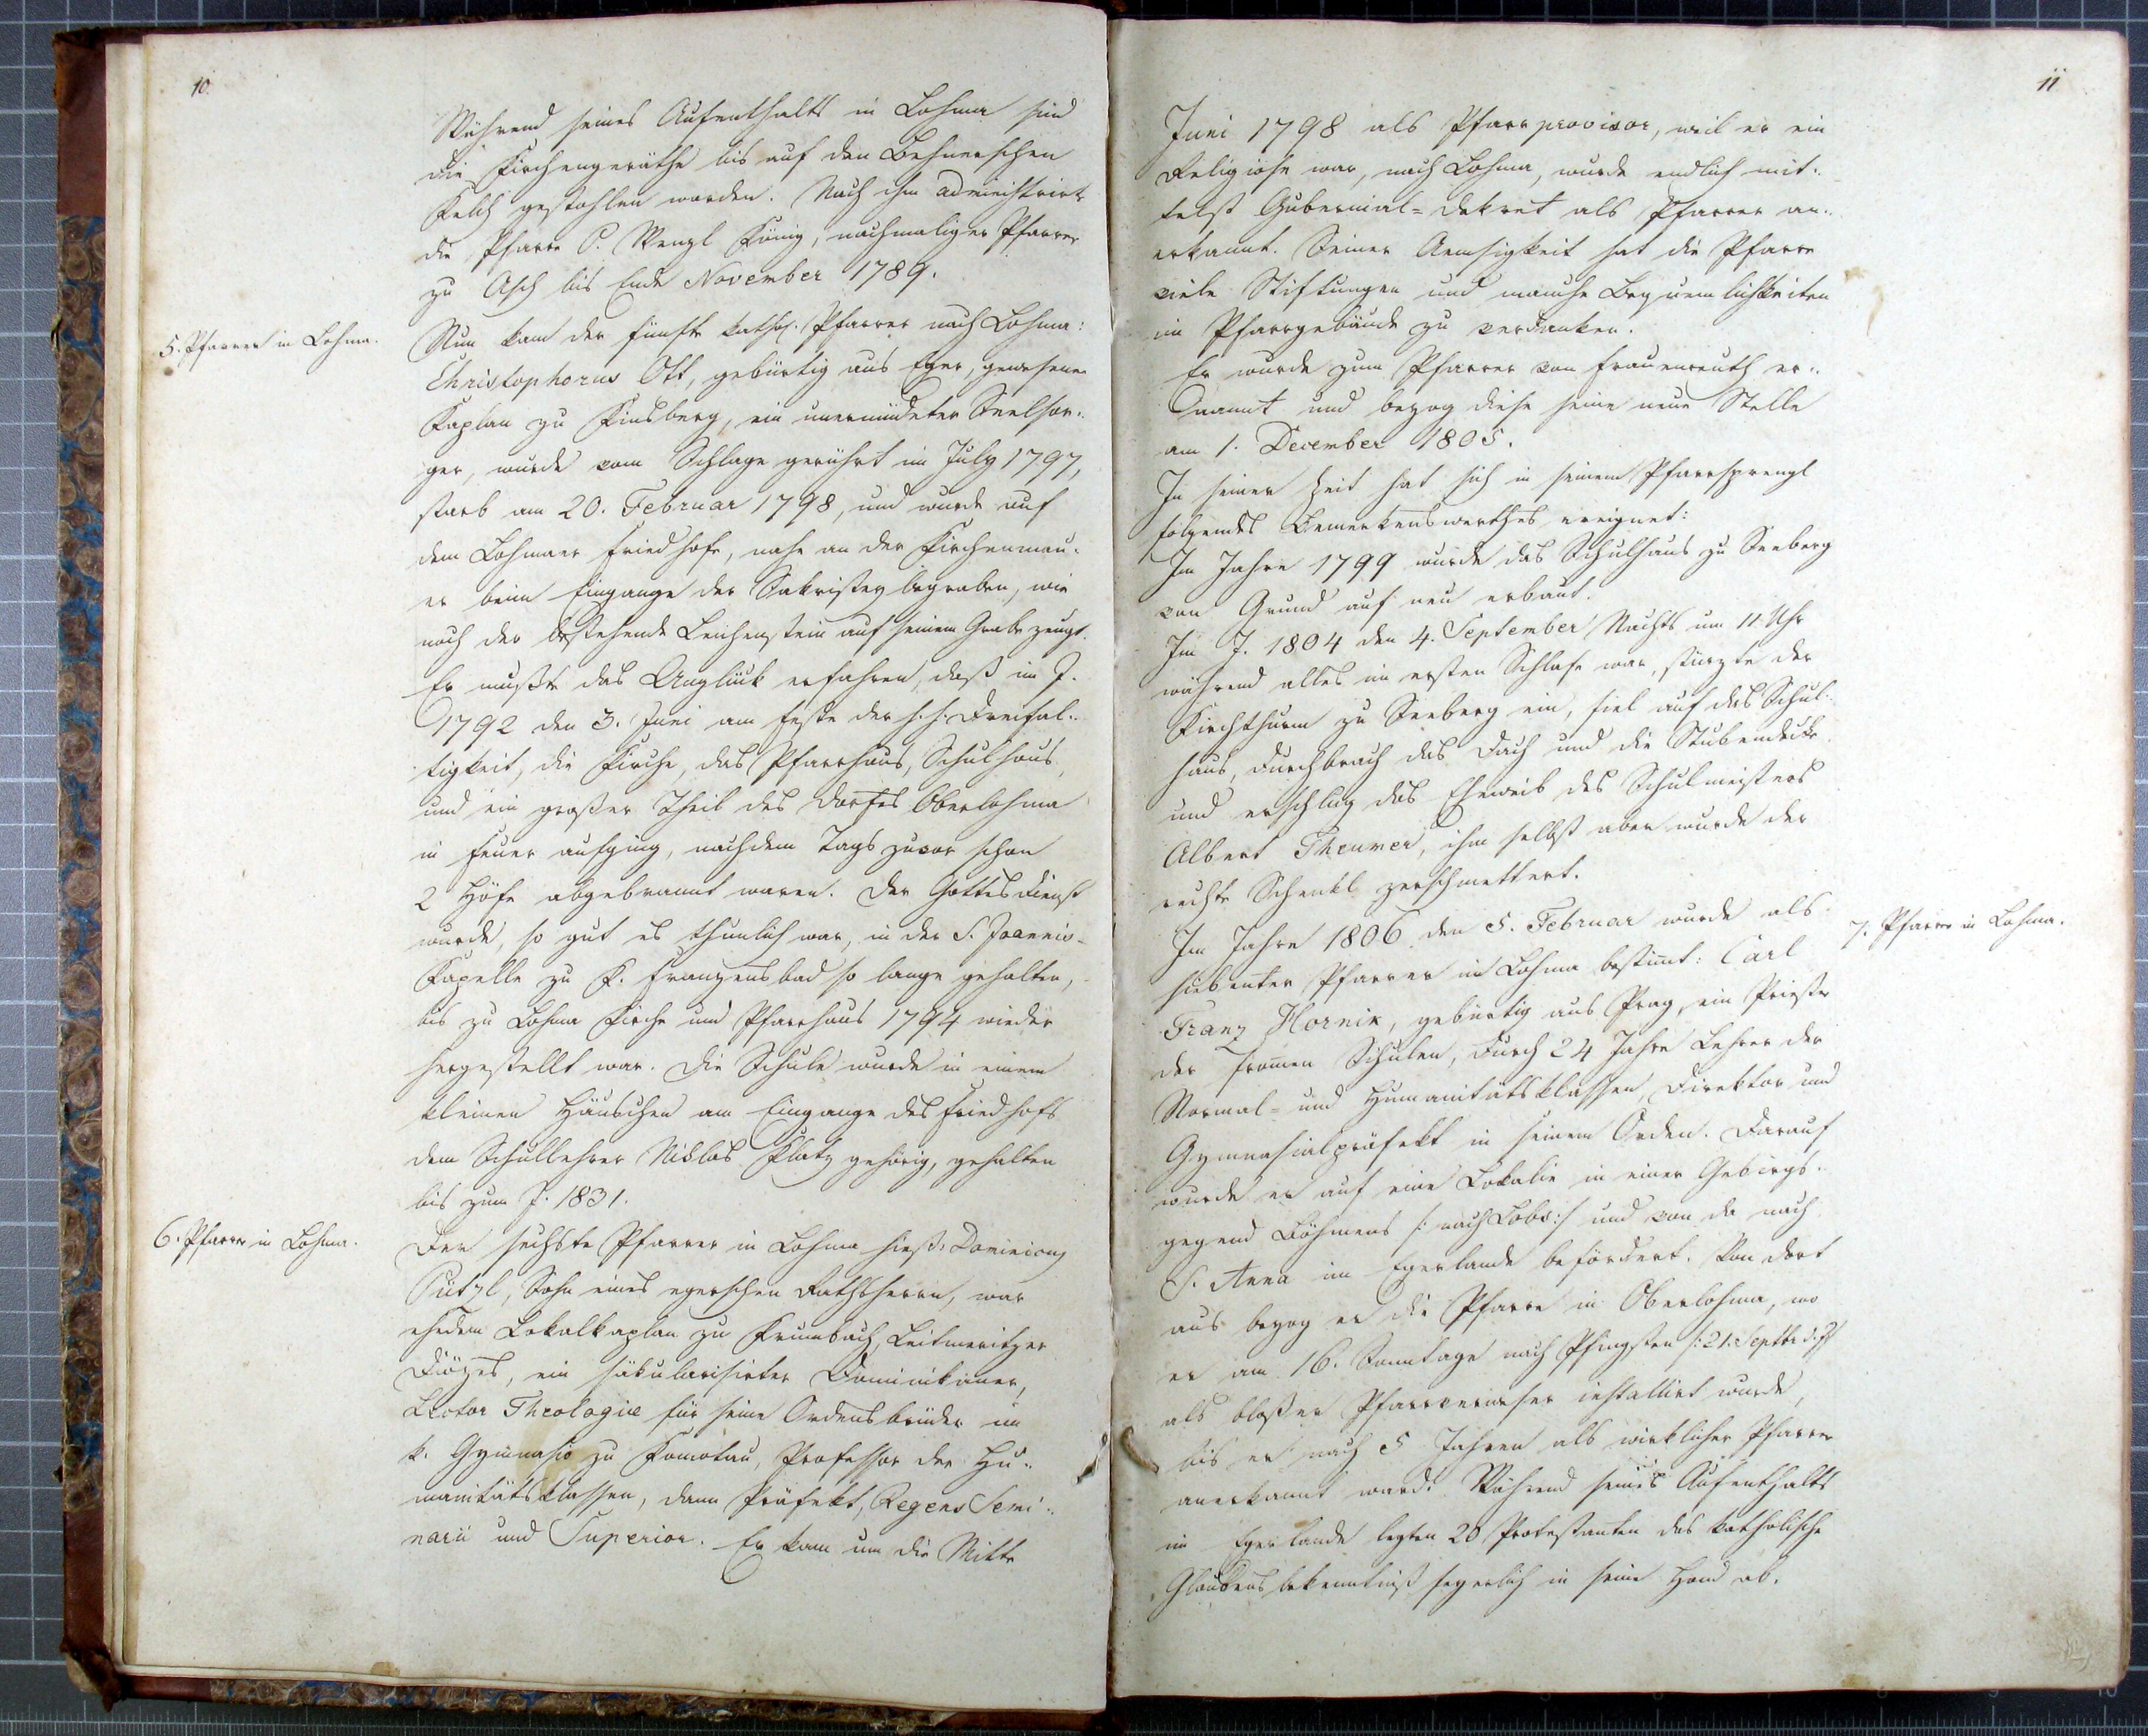 10.
Während seines Aufenthalts in Lohma sind
die Kirchengeräthe bis auf den Lehnerischen
Kelch gestohlen worden. Nach ihm administrirte
die Pfarre P. Wenzl König, nachmaliger Pfarrer
zu Asch bis Ende November 1789.
5. Pfarrer in Lohma.
Nun kam der fünfte kathol. Pfarrer nach Lohma:
Christophorus Ott, gebürtig aus Eger, gewesener
Kaplan zu Kinsberg, ein unermüdeter Seelsor-
ger, wurde vom Schlage gerührt im July 1797,
starb am 20. Februar 1798, und wurde auf
dem Lohmaer Friedhofe, nahe an der Kirchenmau-
er beim Eingange der Sakristey begraben, wie
noch der bestehende Leichenstein auf seinem Grabe zeugt.
Er mußte das Unglück erfahren, daß im J.
1792 den 3. Juni am Feste der h. h. Dreifal-
tigkeit, die Kirche, das Pfarrhaus, Schulhaus,
und ein großer Theil des Dorfes Oberlohma
in Feuer aufging, nachdem Tags zuvor schon
2 Höfe abgebrannt waren. Der Gottesdienst
wurde, so gut es thunlich war, in der S. Joannis-
Kapelle zu K. Franzensbad so lange gehalten,
bis zu Lohma Kirche und Pfarrhaus 1794 wieder
hergestellt war. Die Schule wurde in einem
kleinen Häuschen am Eingange des Friedhofs
dem Schullehrer Niklas Platz gehörig, gehalten
bis zum J. 1831.
6. Pfarrer in Lohma.
Der sechste Pfarrer in Lohma hieß: Dominicus
Pützl, Sohn eines egerschen Rathsherrn, war
ehedem Lokalkaplan zu Krumbach, Leitmeritzer
Diözes, ein säkularisirter Dominikaner,
Lector Theologiæ für seine Ordensbrüder im
k. Gymnasio zu Komotau, Professor der Hu-
manitätsklassen, dann Präfekt, Regens Semi-
narii und Superior. Er kam um die Mitte
11
Juni 1798 als Pfarrprovisor, weil er ein
Religiose war, nach Lohma, wurde endlich mit-
telst Gubernial-Dekret als Pfarrer an-
erkannt. Seiner Aemsigkeit hat die Pfarre
viele Stiftungen und manche Bequemlichkeiten
im Pfarrgebäude zu verdanken.
Er wurde zum Pfarrer von Frauenreuth er-
nannt und bezog diese seine neue Stelle
am 1. December 1805.
In seiner Zeit hat sich in seinem Pfarrsprengl
folgendes Bemerkenswerthes ereignet:
Im Jahre 1799 wurde das Schulhaus zu Seeberg
von Grund auf neu erbaut.
Im J. 1804 den 4. September Nachts um 11 Uhr
während alles im ersten Schlafe war, stürzte der
Kirchthurm zu Seeberg ein, fiel auf das Schul-
haus, durchbrach das Dach und die Stubendecke
und erschlug das Eheweib des Schulmeisters
Albert Theumer, ihm selbst aber wurde der
rechte Schenkl zerschmettert.
7. Pfarrer in Lohma.
Im Jahre 1806 den 5. Februar wurde als
siebenter Pfarrer in Lohma bestimt: Carl
Franz Hornik, gebürtig aus Prag, ein Priester
der fromen Schulen, durch 24 Jahre Lehrer der
Normal- und Humanitätsklassen, Direktor und
Gymnasialpräfekt in seinem Orden. Darauf
wurde er auf eine Lokalie in einer Gebirgs-
gegend Böhmens /: nach Lobs :/ und von da nach
S. Anna im Egerlande befördert. Von dort
aus bezog er die Pfarre in Oberlohma, wo
er am 16. Sonntage nach Pfingsten /: 21. Septbr d. J :/
als bloßer Pfarrverweser installirt wurde,
bis er nach 5 Jahren als wirklicher Pfarrer
anerkannt ward. Während seines Aufenthalts
im Egerlande legten 20 Protestanten das katholische
Glaubensbekenntniß feyerlich in seine Hand ab.